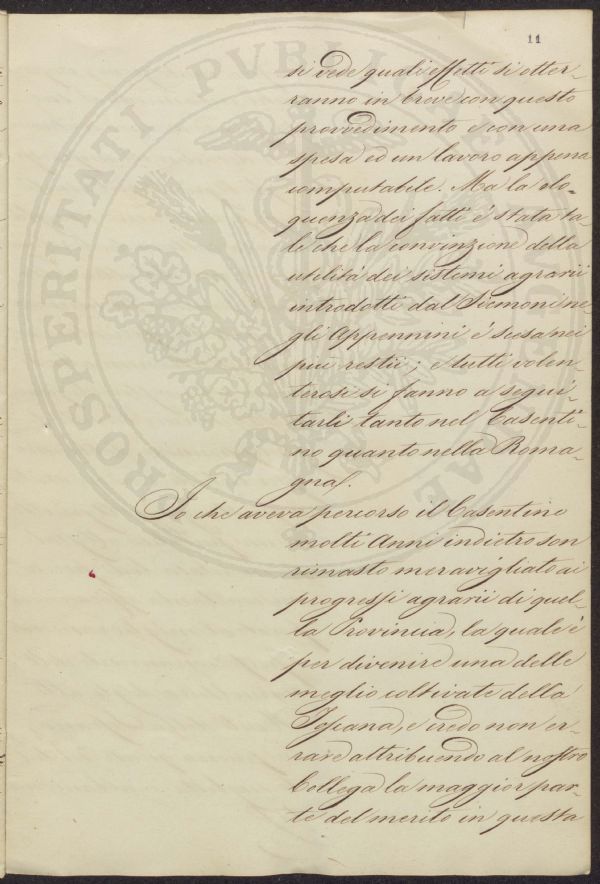 11
si vede quali effetti si otter-
ranno in breve con questo
provvedimento e con una
spesa ed un lavoro appena
computabile. Ma la elo-
quenza dei fatti è stata ta-
le che la convinzione della
utilità dei sistemi agrarii
introdotti dal Siemoni ne-
gli Appennini è scesa nei
più restii; e tutti volen-
terosi si fanno a segui-
tarli tanto nel Casenti-
no quanto nella Roma-
gna.
Io che aveva percorso il Casentino
molti Anni indietro son
rimasto meravigliato ai
progressi agrarii di quel-
la Provincia, la quale è
per divenire una delle
meglio coltivate della
Toscana, e credo non er-
rare attribuendo al nostro
Collega la maggior par-
te del merito in questa
PROSPERITATI PVBLICAE